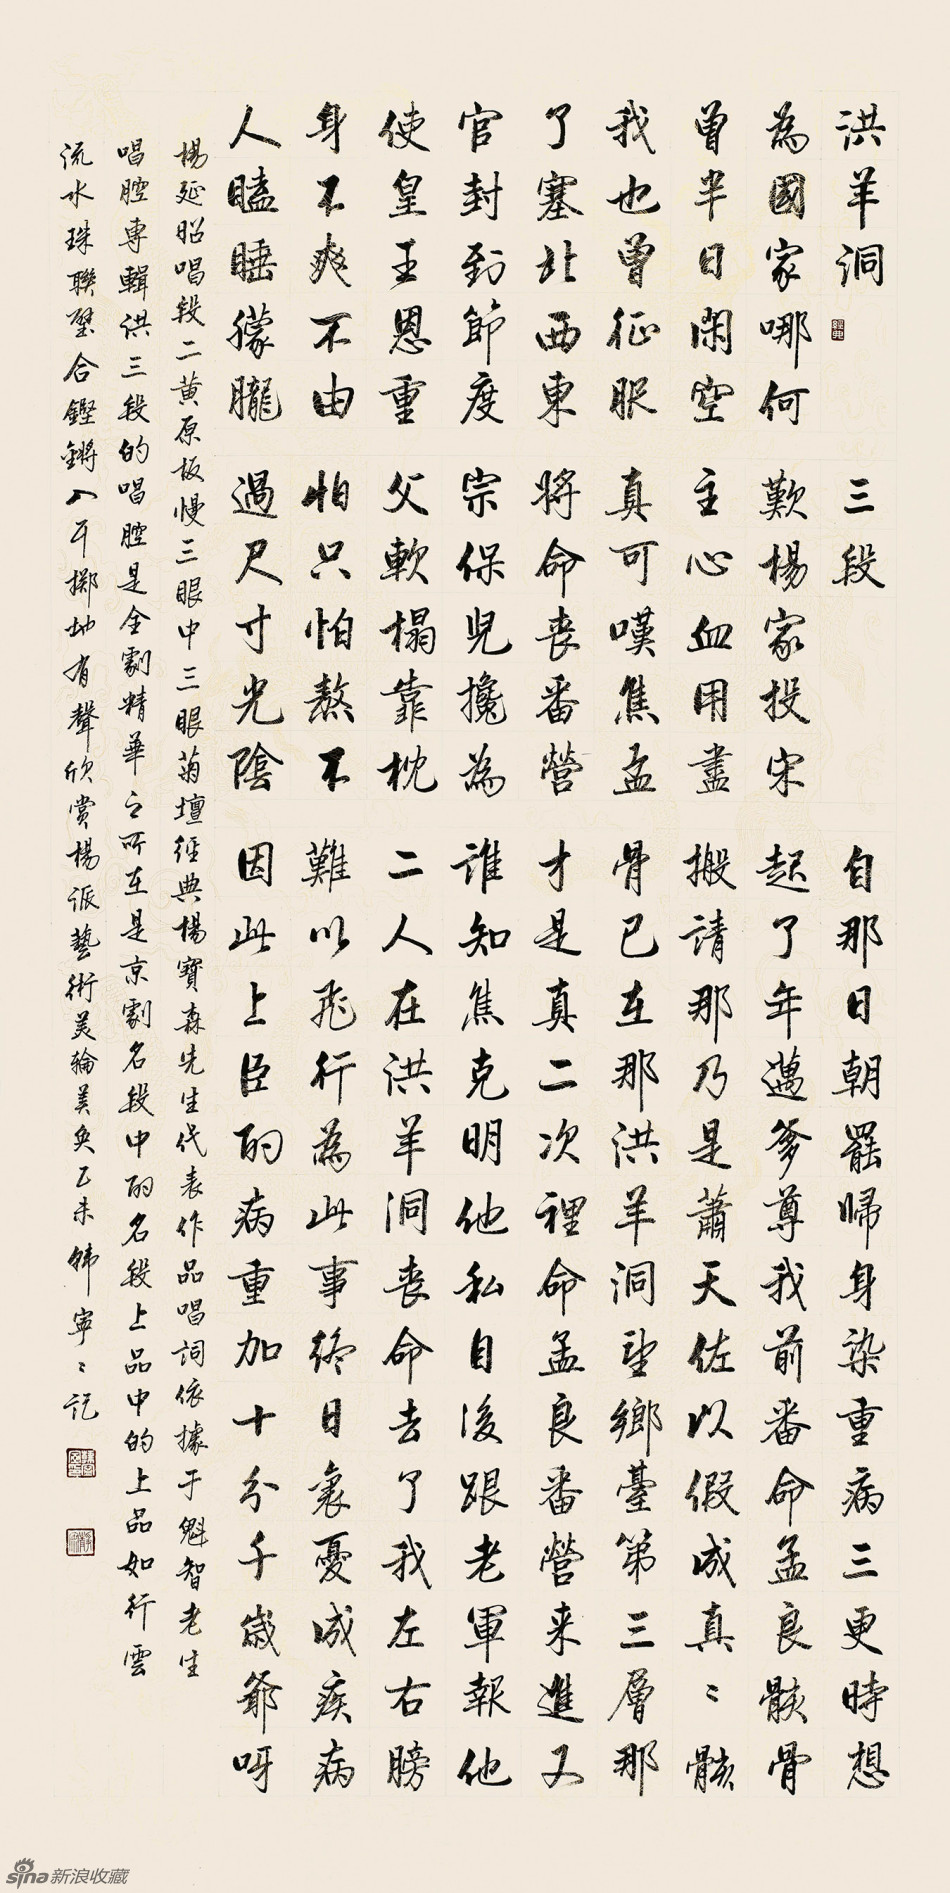 洪羊洞
為國家哪何
曾半日閑空
我也曾征服
了塞北西東
官封到節度
使皇王恩重
身不爽不由
人瞌睡朦朧
三段
歎楊家投宋
主心血用盡
真可嘆焦孟
將命喪番營
宗保兒攙為
父軟榻靠枕
怕只怕熬不
過尺寸光陰
自那日朝罷歸身染重病三更時想
起了年邁爹尊我前番命孟良骸骨
搬請那乃是蕭天佐以假成真〻骸
骨已在那洪羊洞望鄉臺第三層那
才是真二次裡命孟良番營来進又
誰知焦克明他私自後跟老軍報他
二人在洪羊洞喪命去了我左右膀
難以飛行為此事終日裏憂成疾病
因此上臣的病重加十分千歲爺呀
楊延昭唱段二黃原板慢三眼中三眼菊壇經典楊寶森先生代表作品唱詞依據于魁智老生
唱腔專輯洪三段的唱腔是全劇精華之所在是京劇名段中的名段上品中的上品如行雲
流水珠聯璧合鏗鏘入耳擲地有聲欣賞楊派藝術美輪美奐乙未韓寧〻記
sina新浪收藏